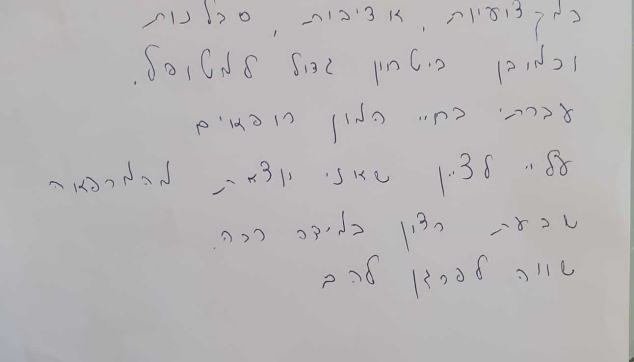 במקצועיות, אדיבות, סבלנות
וכמובן ביטחון גדול למטופל.
עברתי בחיי המון רופאים
עליי לציין שאני יוצאת מהמרפאה
שבעת רצון במידה רבה.
שווה לפרגן להם